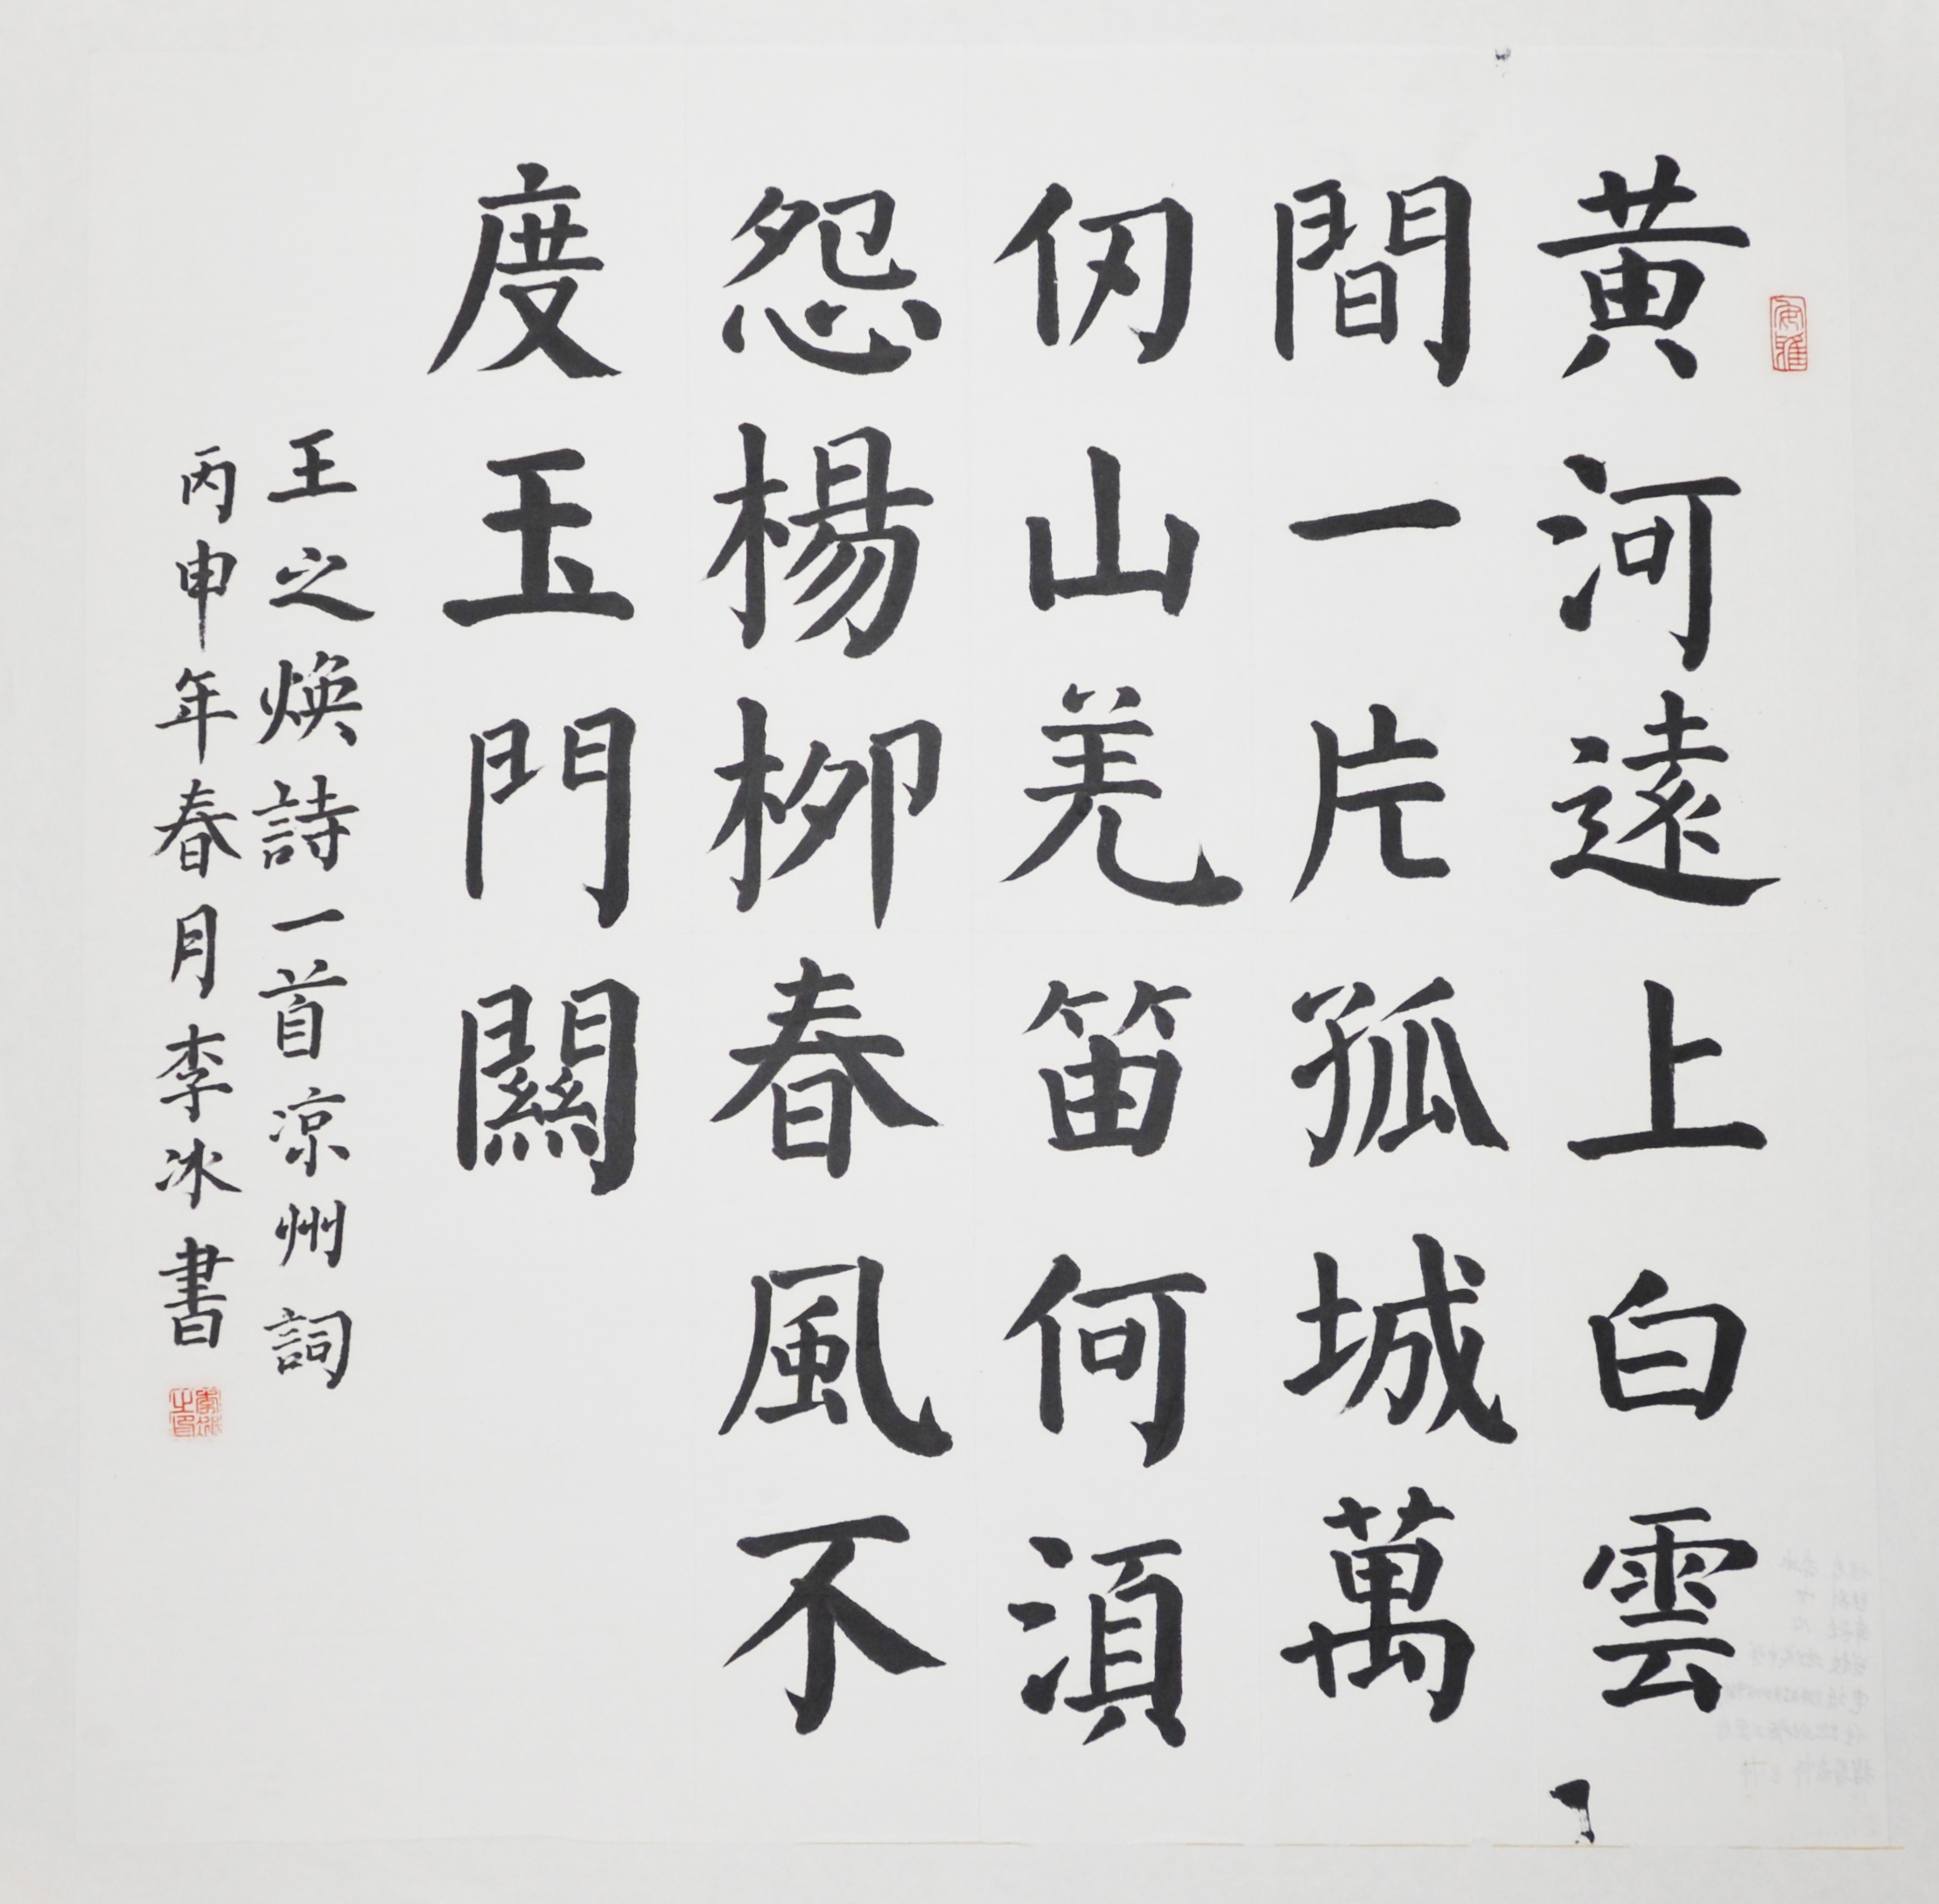 黄河遠上白雲
間一片孤城萬
仞山羌笛何須
怨楊柳春風不
度玉門關
王之煥詩一首凉州詞
丙申年春月李冰書
安雅
李冰之印